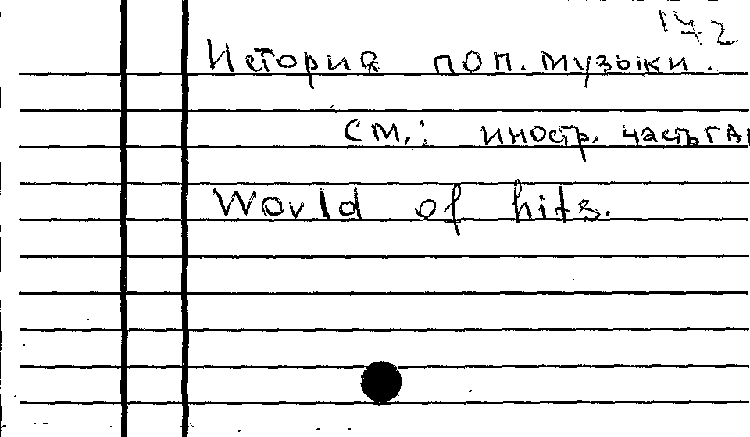 172
История поп. музыки.
см.: иностр. часть ГАК
World of hits.